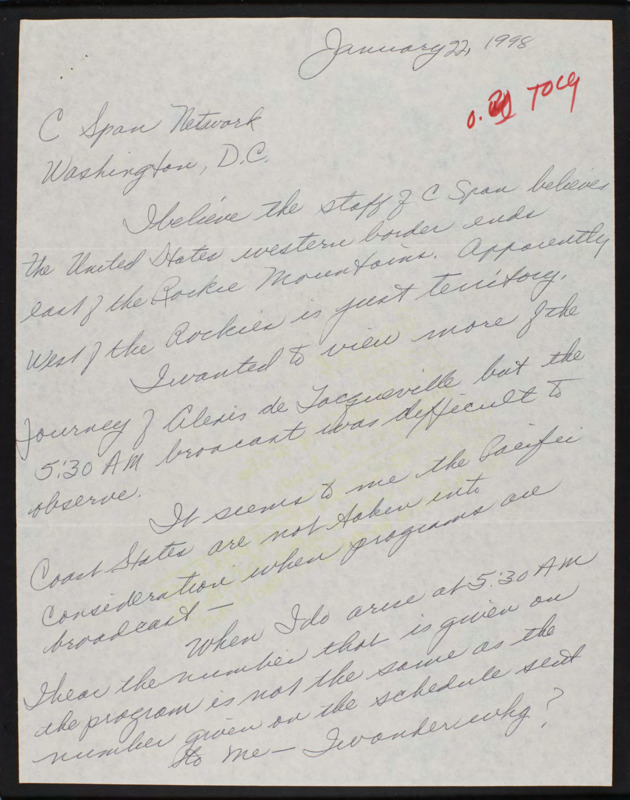 January 22, 1998
TOCQ
C Span Network
Washington, D.C.
I believe the staff of C Span believes
the United States western border ends
east of the Rockie Mountains. Apparently
West of the Rockies is just territory.
I wanted to view more of the
Journey of Alexis de Tocqueville but the
5:30 AM broacast was difficult to
observe.
It seems to me the Pacific
Coast States are not taken into
consideration when programs are
broadcast —
When I do arise at 5:30 AM
I hear the number that is given on
the program is not the same as the
number given on the schedule sent
to me — I wonder why?